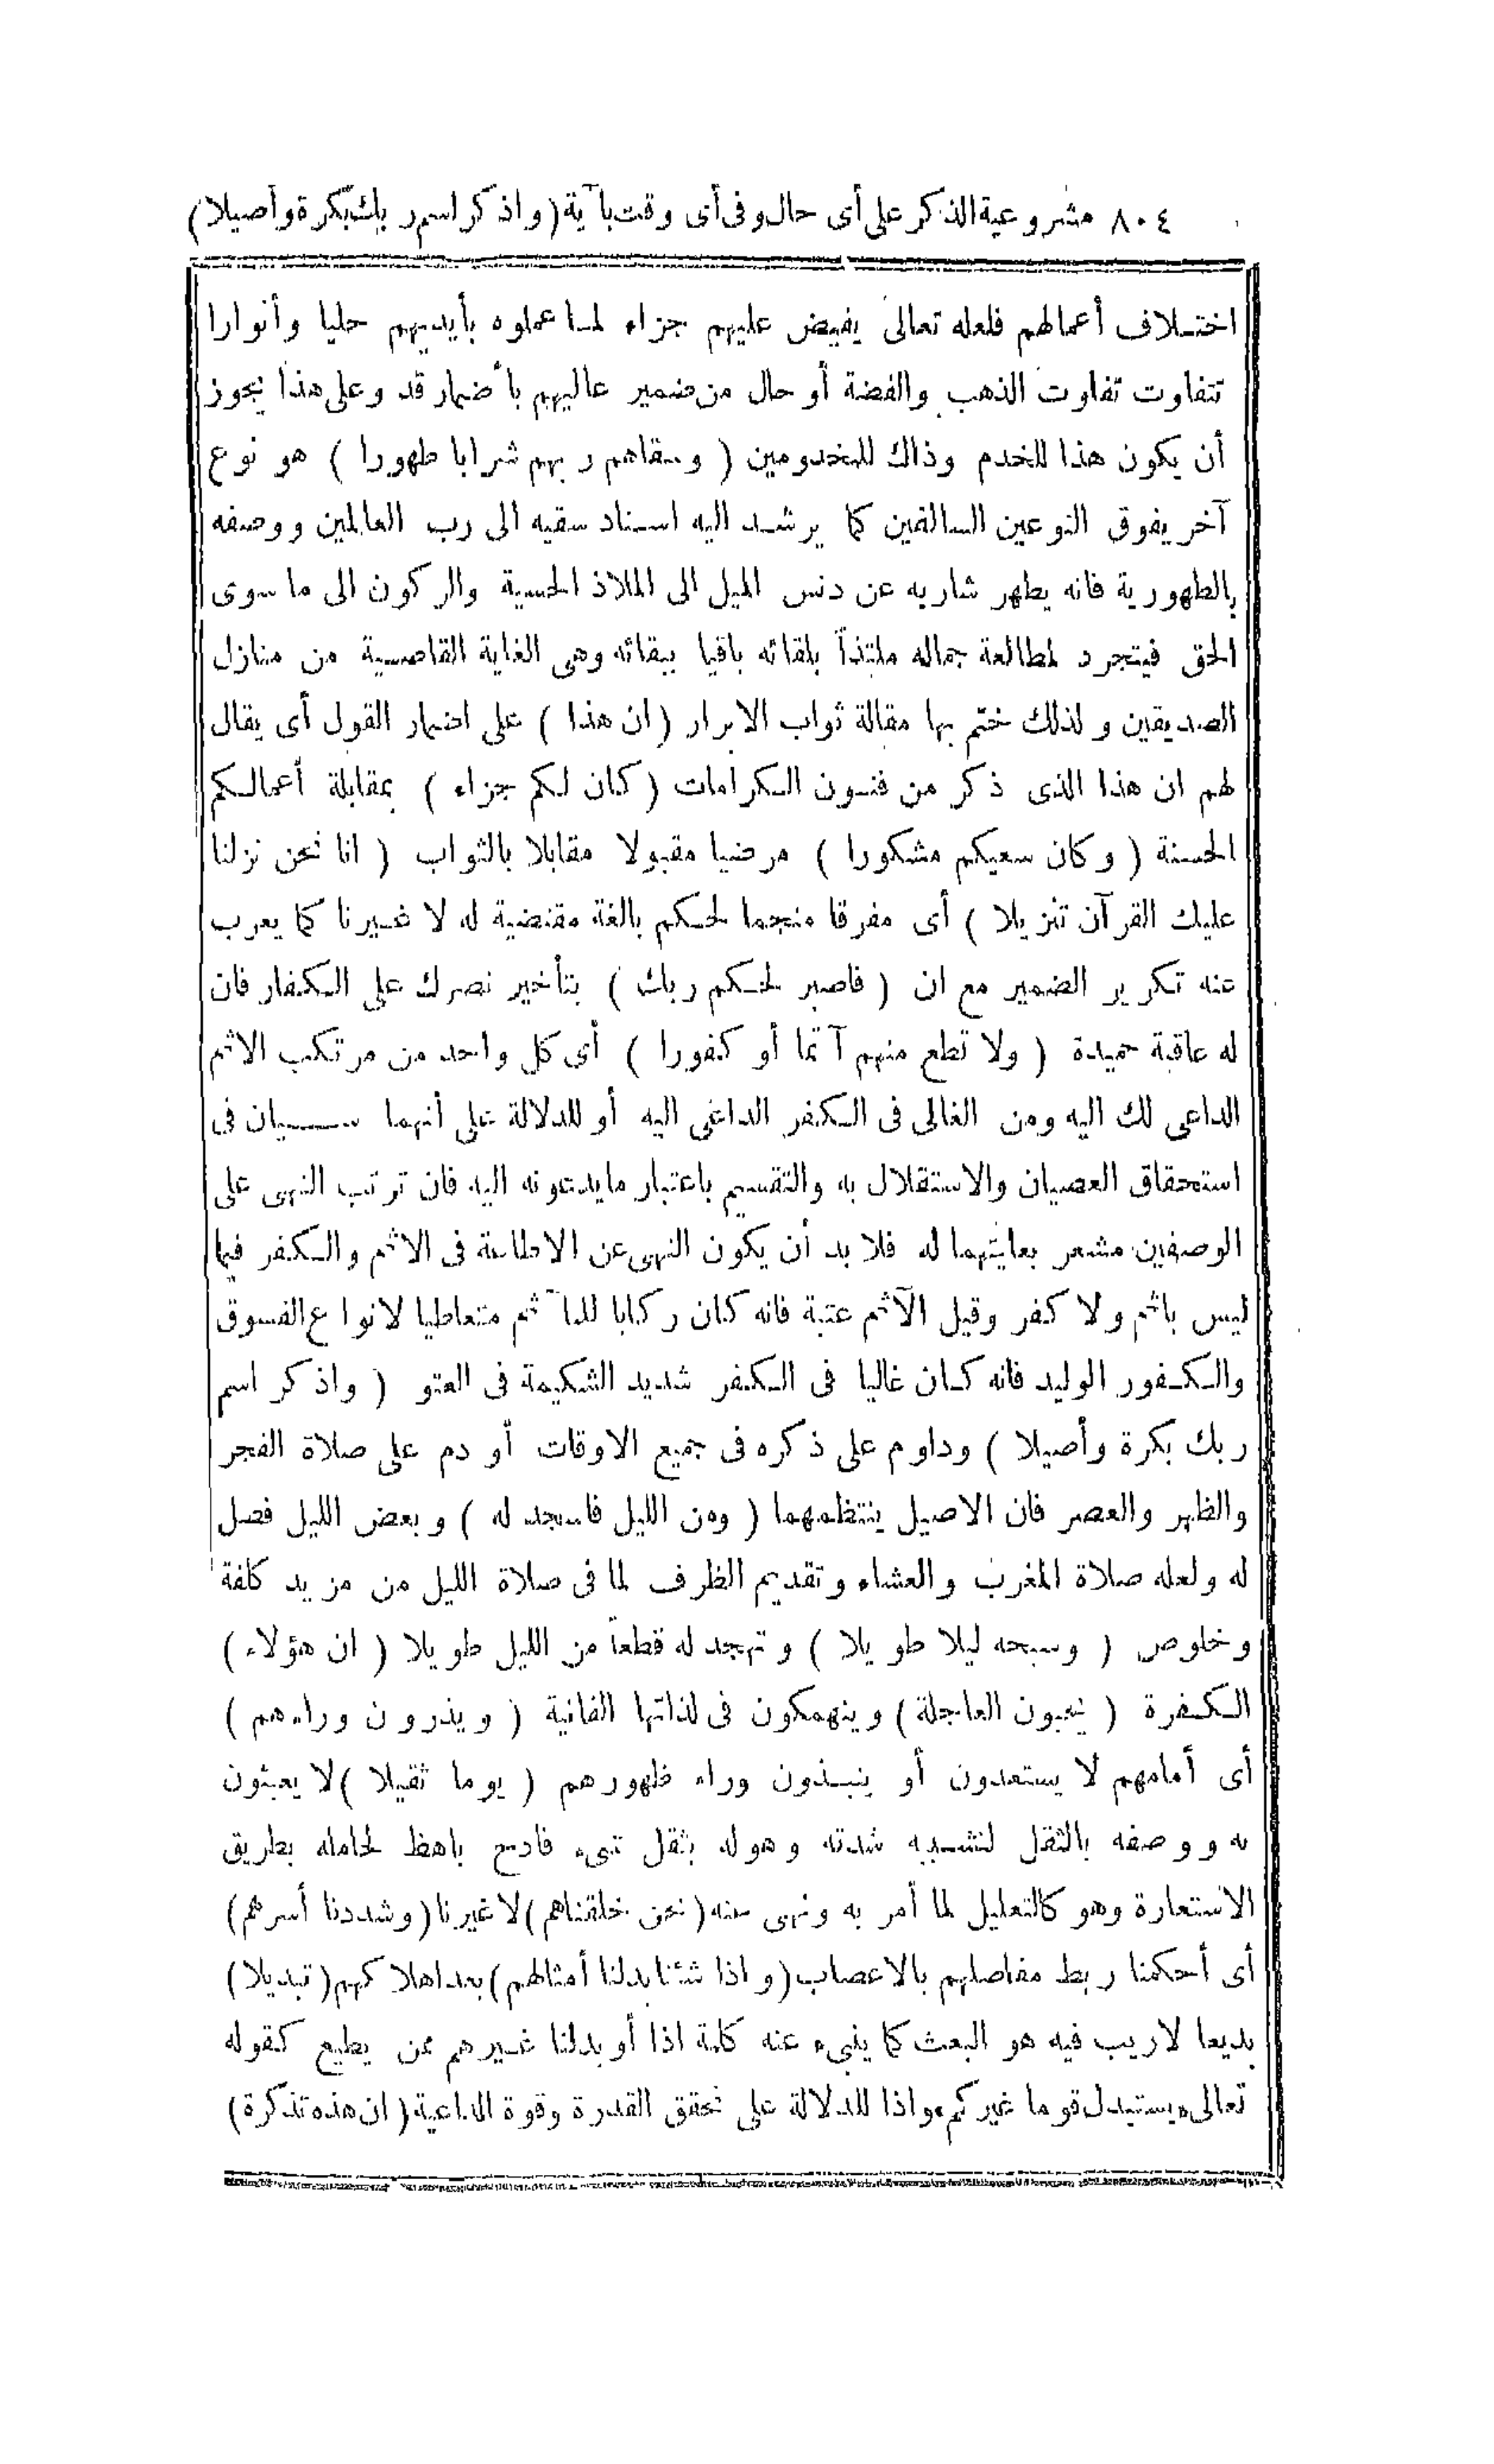 ٨٠٤ مشروعية الذكر على أى حال وفى أى وقت بآية (واذكر اسم ربك بكرة وأصيلا)
اختلاف أعمالهم فلعله تعالى يفيض عليهم جزاء لما عملوه بأيديهم حليا وأنوارا
تتفاوت تفاوت الذهب والفضة أو حال من ضمير عاليهم باضمار قد وعلى هذا يجوز
أن يكون هذا للخدم وذاك للمخدومين ( وسقاهم ربهم شرابا طهورا ) هو نوع
آخر يفوق النوعين السالفين كما يرشد اليه اسناد سقيه الى رب العالمين ووصفه
بالطهورية فانه يطهر شاربه عن دنس الميل الى الملاذ الحسية والركون الى ما سوى
الحق فيتجرد لمطالعة جماله ملتذاً بلقائه باقيا ببقائه وهى الغاية القاصية من منازل
الصديقين ولذلك ختم بها مقالة ثواب الابرار (ان هذا ) على اضمار القول أى يقال
لهم ان هذا الذى ذكر من فنون الكرامات (كان لكم جزاء ) بمقابلة أعمالكم
الحسنة ( وكان سعيكم مشكورا ) مرضيا مقبولا مقابلا بالثواب ( انا نحن نزلنا
عليك القرآن تنزيلا ) أى مفرقا منجما لحكم بالغة مقتضية له لا غيرنا كما يعرب
عنه تكرير الضمير مع ان ( فاصبر لحكم ربك ) بتأخير نصرك على الكفار فان
له عاقبة حميدة ( ولا تطع منهم آثما أو كفورا ) أى كل واحد من مرتكب الاثم
الداعى لك اليه ومن الغالى فى الكفر الداعى اليه أو للدلالة على أنهما سيان فى
استحقاق العصيان والاستقلال به والتقسيم باعتبار ما يدعونه اليه فان ترتب النهى على
الوصفين مشعر بعليتهما له فلا بد أن يكون النهى عن الاطاعة فى الاثم والكفر فيما
ليس باثم ولا كفر وقيل الآثم عتبة فانه كان ركابا للمآثم متعاطيا لانواع الفسوق
والكفور الوليد فانه كان غاليا فى الكفر شديد الشكيمة فى العتو ( واذكر اسم
ربك بكرة وأصيلا ) وداوم على ذكره فى جميع الاوقات أو دم على صلاة الفجر
والظهر والعصر فان الاصيل ينتظمهما ( ومن الليل فاسجد له ) وبعض الليل فصل
له ولعله صلاة المغرب والعشاء وتقديم الظرف لما فى صلاة الليل من مزيد كلفة
وخلوص ( وسبحه ليلا طويلا ) وتهجد له قطعا من الليل طويلا ( ان هؤلاء )
الكفرة ( يحبون العاجلة ) وينهمكون فى لذاتها الفانية ( ويذرون وراءهم )
أى أمامهم لا يستعدون أو ينبذون وراء ظهورهم ( يوما ثقيلا ) لا يعبئون
به ووصفه بالثقل لتشبيه شدته وهوله بثقل شىء فادح باهظ لحامله بطريق
الاستعارة وهو كالتعليل لما أمر به ونهى عنه (نحن خلقناهم) لا غيرنا (وشددنا أسرهم)
أى أحكمنا ربط مفاصلهم بالاعصاب (واذا شئنا بدلنا أمثالهم) بعد اهلاكهم (تبديلا)
بديعا لا ريب فيه هو البعث كما ينبىء عنه كلمة اذا أو بدلنا غيرهم ممن يطيع كقوله
تعالى ويستبدل قوما غيركم واذا للدلالة على تحقق القدرة وقوة الداعية (ان هذه تذكرة)